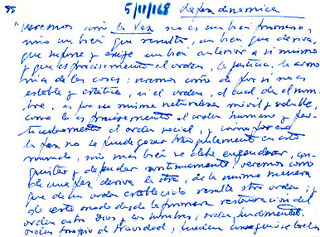 95 5/11/168 La paz dinamica
"Veremos como la Paz no es un bien primero,
sino un bien que resulta, un bien que deriva,
que supone y exige un bien anterior a si mismo
y que es precisamente el orden, la justicia, la armo
nia de las cosas; veremos como de por si no es
estable y estatica, ni el orden, el cual de el nom
bre, es por su misma naturaleza movil y voluble,
como lo es precisamente el orden humano y par
ticularmente el orden social, y como por eso
la paz no se puede gozar tranquilamente en este
mundo, sino mas bien se debe engendrar, con
quistar y defender continuamente; veremos como
de una paz deriva la otra, de la misma manera
que de un orden establecido resulta otro orden; y
de este modo desde la primera restauración del
orden entre Dios y los hombres, orden fundamental,
orden propio de Navidad, pueden conseguirse los